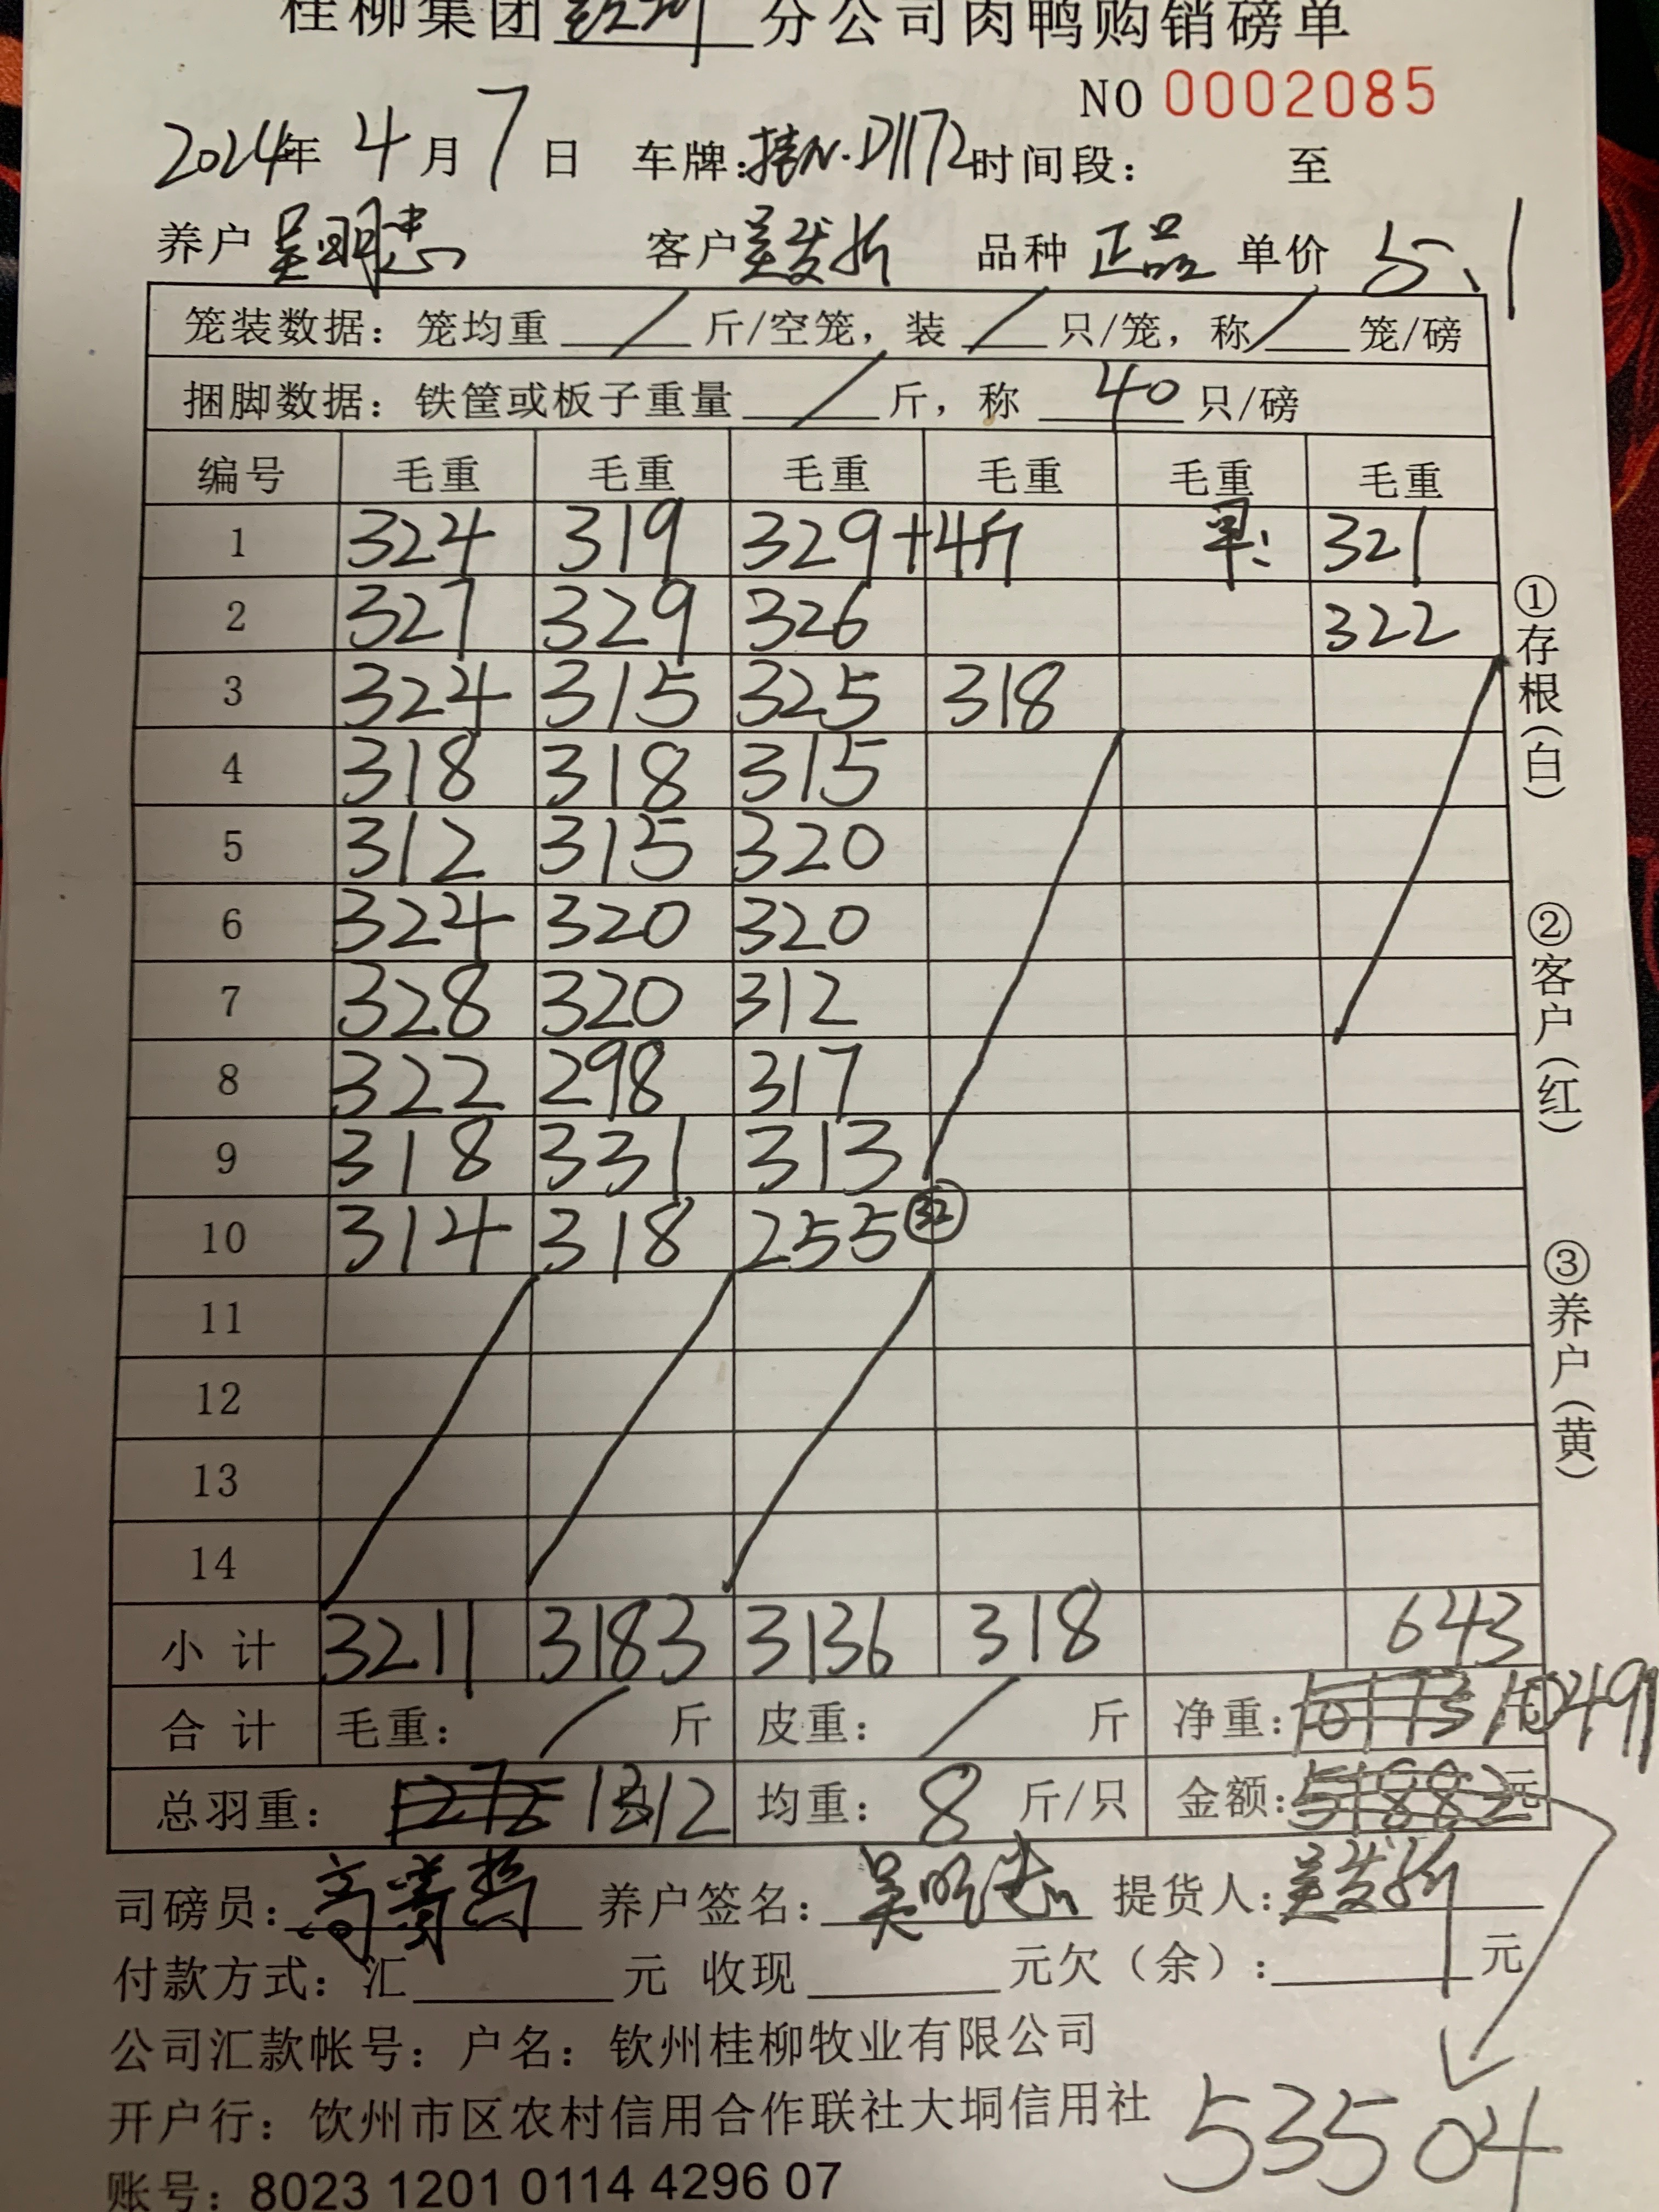 桂柳集团钦州分公司肉鸭购销磅单
NO 0002085
2024年 4月 7日 车牌:桂N·D1172 时间段: 至
养户 吴明忠 客户 吴发 品种 正品 单价 5.1
笼装数据: 笼均重 / 斤/空笼, 装 / 只/笼, 称 / 笼/磅
捆脚数据: 铁筐或板子重量 / 斤, 称 40 只/磅
编号 毛重 毛重 毛重 毛重 毛重 毛重
1 324 319 329+4斤 早: 321
2 327 329 326 322
3 324 315 325 318
4 318 318 315
5 312 315 320
6 324 320 320
7 328 320 312
8 322 298 317
9 318 331 313
10 314 318 255 32
11
12
13
14
小计 3211 3183 3136 318 643
合计 毛重: / 斤 皮重: / 斤 净重: 10173 10491
总羽重: 1272 1312 均重: 8 斤/只 金额: 51882 元
司磅员: 高 养户签名: 吴明忠 提货人: 吴发
付款方式: 汇 元 收现 元欠(余): 元
公司汇款帐号: 户名: 钦州桂柳牧业有限公司
开户行: 钦州市区农村信用合作联社大垌信用社
53504
账号: 8023 1201 0114 4296 07
①存根(白)
②客户(红)
③养户(黄)